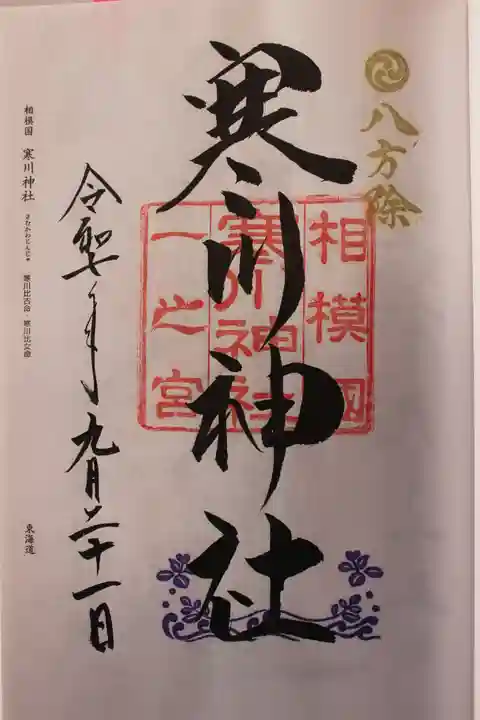 八方除
寒川神社
相模國
寒川神社
一之宮
令和年九月二十一日
相模国　寒川神社　さむかわじんじゃ　寒川比古命　寒川比女命　東海道